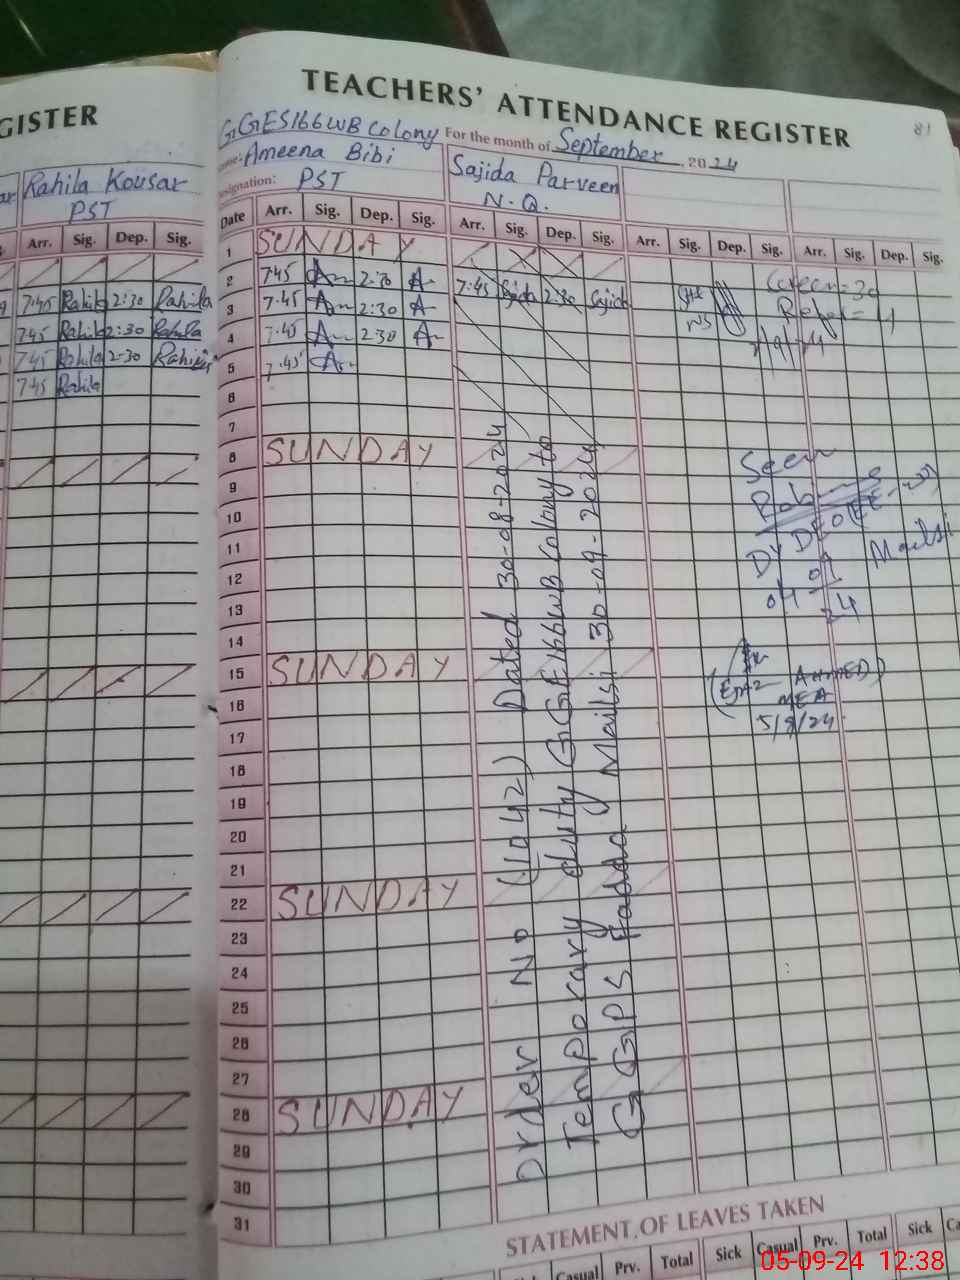 GISTER
Rahila Kousar
PST
Arr. Sig. Dep. Sig.
7:45 Rahila 2:30 Rahila
7:45 Rahila 2:30 Rahila
7:45 Rahila 2-30 Rahila
7:45 Rahila
TEACHERS' ATTENDANCE REGISTER
81
GGES 166WB Colony For the month of September 2024
Name: Ameena Bibi
Sajida Parveen
Designation: PST
N.Q.
Date Arr. Sig. Dep. Sig. Arr. Sig. Dep. Sig. Arr. Sig. Dep. Sig. Arr. Sig. Dep. Sig.
1 SUNDAY
2 7:45 2:30 7:45 Sajida 2:30 Sajida
3 7:45 2:30
4 7:45 2:30
5 7:45
6
7
8 SUNDAY
9
10
11
12
13
14
15 SUNDAY
16
17
18
19
20
21
22 SUNDAY
23
24
25
26
27
28 SUNDAY
29
30
31
Order No (11042) Dated 30-08-2024
Temporary duty GGE 166WB Colony to
GGPS Fadda Mailsi 30-09-2024
Seen
DY DEO EE-W
Mailsi
04-09
24
AHMED)
MEA
5/9/24
STATEMENT OF LEAVES TAKEN
Casual Prv. Total Sick Casual Prv. Total Sick
05-09-24 12:38